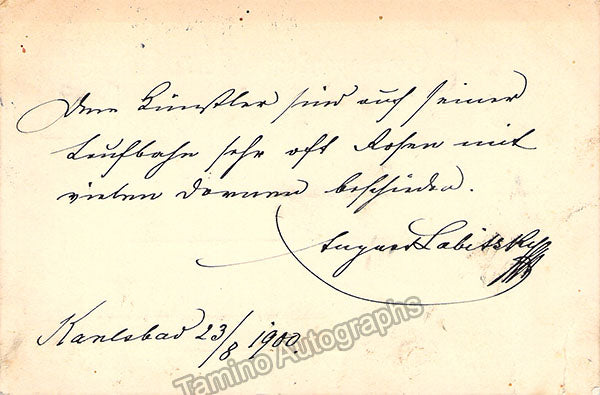 Dem Künstler sind auf seiner
Laufbahn sehr oft Rosen mit
vielen Dornen beschieden.
August Labitzky
Karlsbad 23/8 1900.
Tamino Autographs